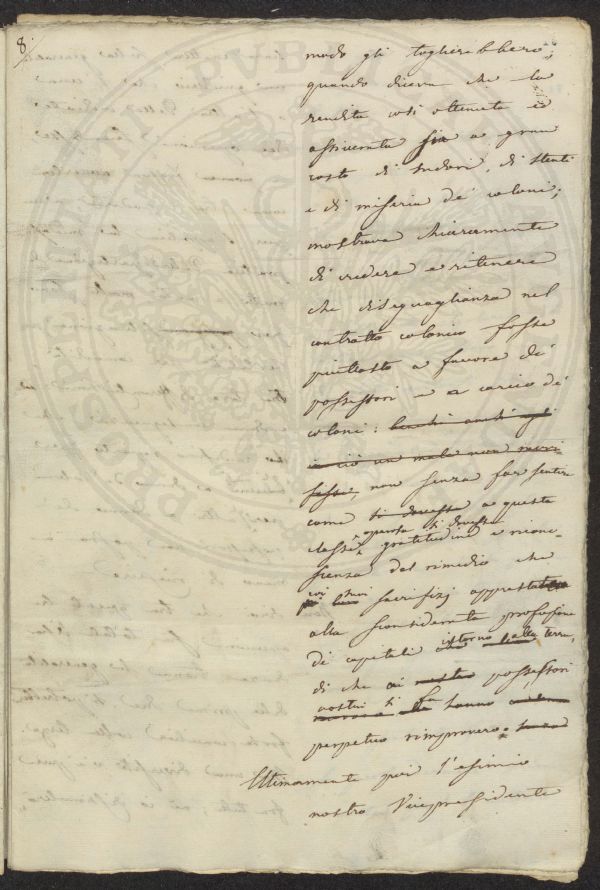 8.
modo gli toglierebbero;
quando diceva che la
rendita così ottenuta è
assicurata sia a gran
costo di sudori, di stenti
e di miseria de' coloni;
mostrava chiaramente
di credere e ritenere
che diseguaglianza nel
contratto colonico fosse
piuttosto a favore dei
possessori e a carico dei
coloni: benchè anch'egli
in ciò un male non mani-
festi, non senza far sentire
come si dovesse a questa
classe questa si dovesse
gratitudine e ricono-
scenza del rimedio che
coi suoi sacrifizj apprestato
alla sconsiderata profusione
de' capitali intorno alla terra,
di che ai possessori
nostri si fa hanno
perpetuo rimprovero.
Ultimamente poi l'esimio
nostro Vicepresidente